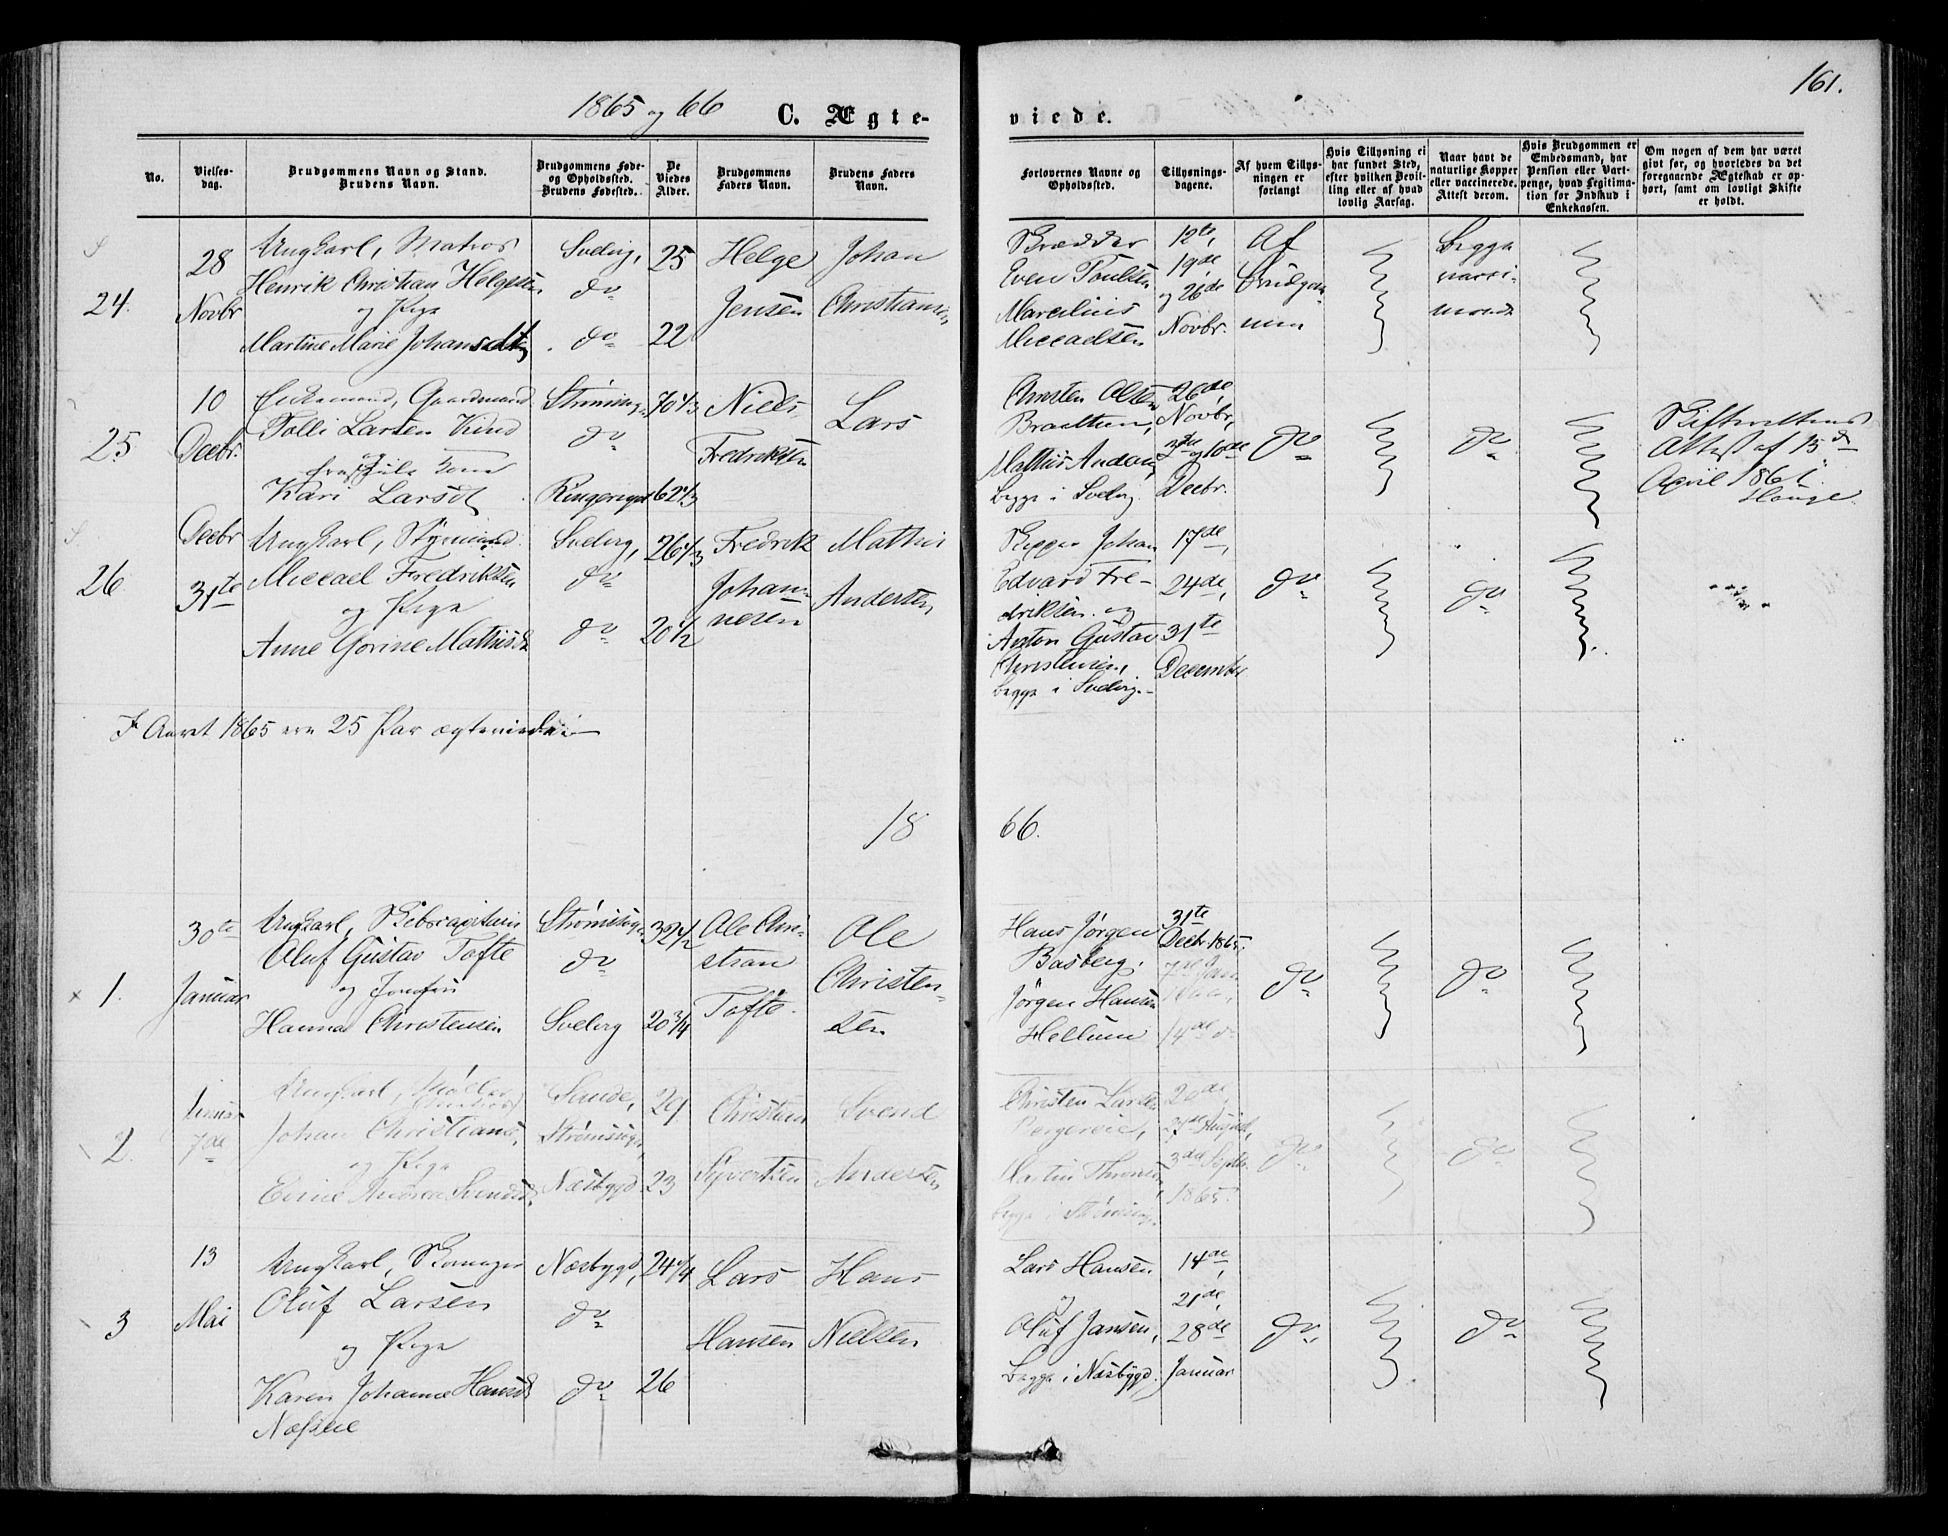 1865 og 66
C. Ægte-
viede.
161.
No.
Vielses-
dag.
Brudgommens Navn og Stand.
Brudens Navn.
Brudgommens Føde-
og Opholdssted.
Brudens Fødested.
De
Viedes
Alder.
Brudgommens
Faders Navn.
Brudens Faders
Navn.
Forlovernes Navne og
Opholdssted.
Tillysnings-
dagene.
Af hvem Tillys-
ningen er
forlangt
Hvis Tillysning ei
har fundet Sted,
efter hvilken Bevil-
ling eller af hvad
lovlig Aarsag.
Naar havt de
naturlige Kopper
eller vaccinerede.
Attest derom.
Hvis Brudgommen er
Embedsmand, har
Pension eller Vart-
penge, hvad Legitima-
tion for Indskud i
Enkekassen.
Om nogen af dem har været
givt før, og hvorledes da det
foregaaende Ægteskab er op-
hørt, samt om lovligt Skifte
er holdt.
24.
28
Novbr
Ungkarl, Matros
Henrik Christian Helgesen
og Pige
Martine Marie Johansdt
Svelvig,
do
do
25
22
Helge
Jensen
Johan
Christiansen
Even Poulsen
Marcelius
Miccaelsen
12te,
19de,
og 26de
Novbr.
Af
Brudgom-
men
Begge
vacci-
nerede
25
10
Decbr.
Enkemand, Gaardmand
Tolli Larsen Kind
Kari Larsdt
Strømmen
do
Ringeriget
70 1/3
62 1/3
Niels
Fredriksen
Lars
Christen Olsen
Braatten,
Mathis Andersen,
begge i Svelvig
26de
Novbr,
3die og 10de
Decbr.
do
do
Skifterettens
Attest af 15de
April 1861.
Hauge.
26
Decbr
31te
Ungkarl, Styrmand
Miccael Fredriksen
og Pige
Anne Gorine Mathisdt
Svelvig,
do
do
26 1/3
20 1/2
Fredrik
Johan-
nesen
Mathis
Andersen
Skipper Johan
Edvard Fre-
driksen og
Anton Gustav
Christensen,
begge i Svelvig.
17de,
24de,
31te
December
do
do
I Aaret 1865 ere 25 Par ægteviede
1866.
1.
30te
Januar
Ungkarl, Skibscapitain
Oluf Gustav Tofte
og Jomfru
Hanna Christensen
do
Svelvig
32 1/2
20 3/4
Ole Chri-
stian
Tofte.
Ole
Christen-
sen
Hans Jørgen
Basberg,
Jørgen Hansen
Hellum
31te
Decbr 1865.
14de do
do
do
2.
Januar
7de
Ungkarl, Møller
Johan Christians,
og Pige
Sande,
Næsbygd
29
23
Christian
Syvertsen
Svend
Andersen
Christen Larsen
Bergereie,
Martin Thronsen,
20de,
27de August,
3die Septbr.
1865.
do
do
3
13
Mai
Ungkarl, Skomager
Oluf Larsen
og Pige
Karen Johanne Hansdt
Næssene
Næsbygd,
do
do
24 3/4
26
Lars
Hansen
Hans
Nielsen
Lars Hansen
og
Oluf Jansen,
begge i Næsbygd.
14de,
21de,
28de
Januar
do
do